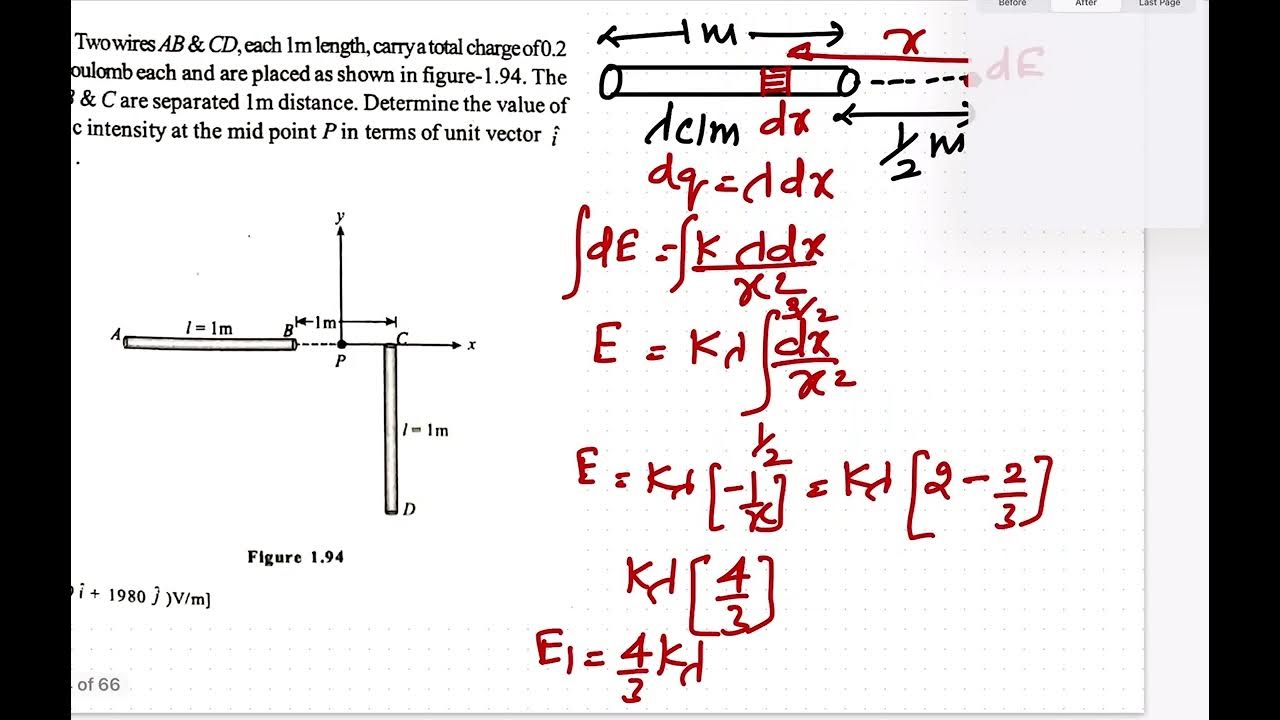 Before After Last Page
Two wires AB & CD, each 1m length, carry a total charge of 0.2
oulomb each and are placed as shown in figure-1.94. The
& C are separated 1m distance. Determine the value of
c intensity at the mid point P in terms of unit vector î
.
y
l = 1m
B
1m
A
C
x
P
l = 1m
D
Figure 1.94
î + 1980 ĵ )V/m]
of 66
1m
x
dE
λc/m
dx
1/2 m
dq = λdx
∫dE = ∫Kλdx/x²
E = Kλ ∫_{1/2}^{3/2} dx/x²
E = Kλ [-1/x] = Kλ [2 - 2/3]
Kλ [4/3]
E₁ = 4/3 Kλ